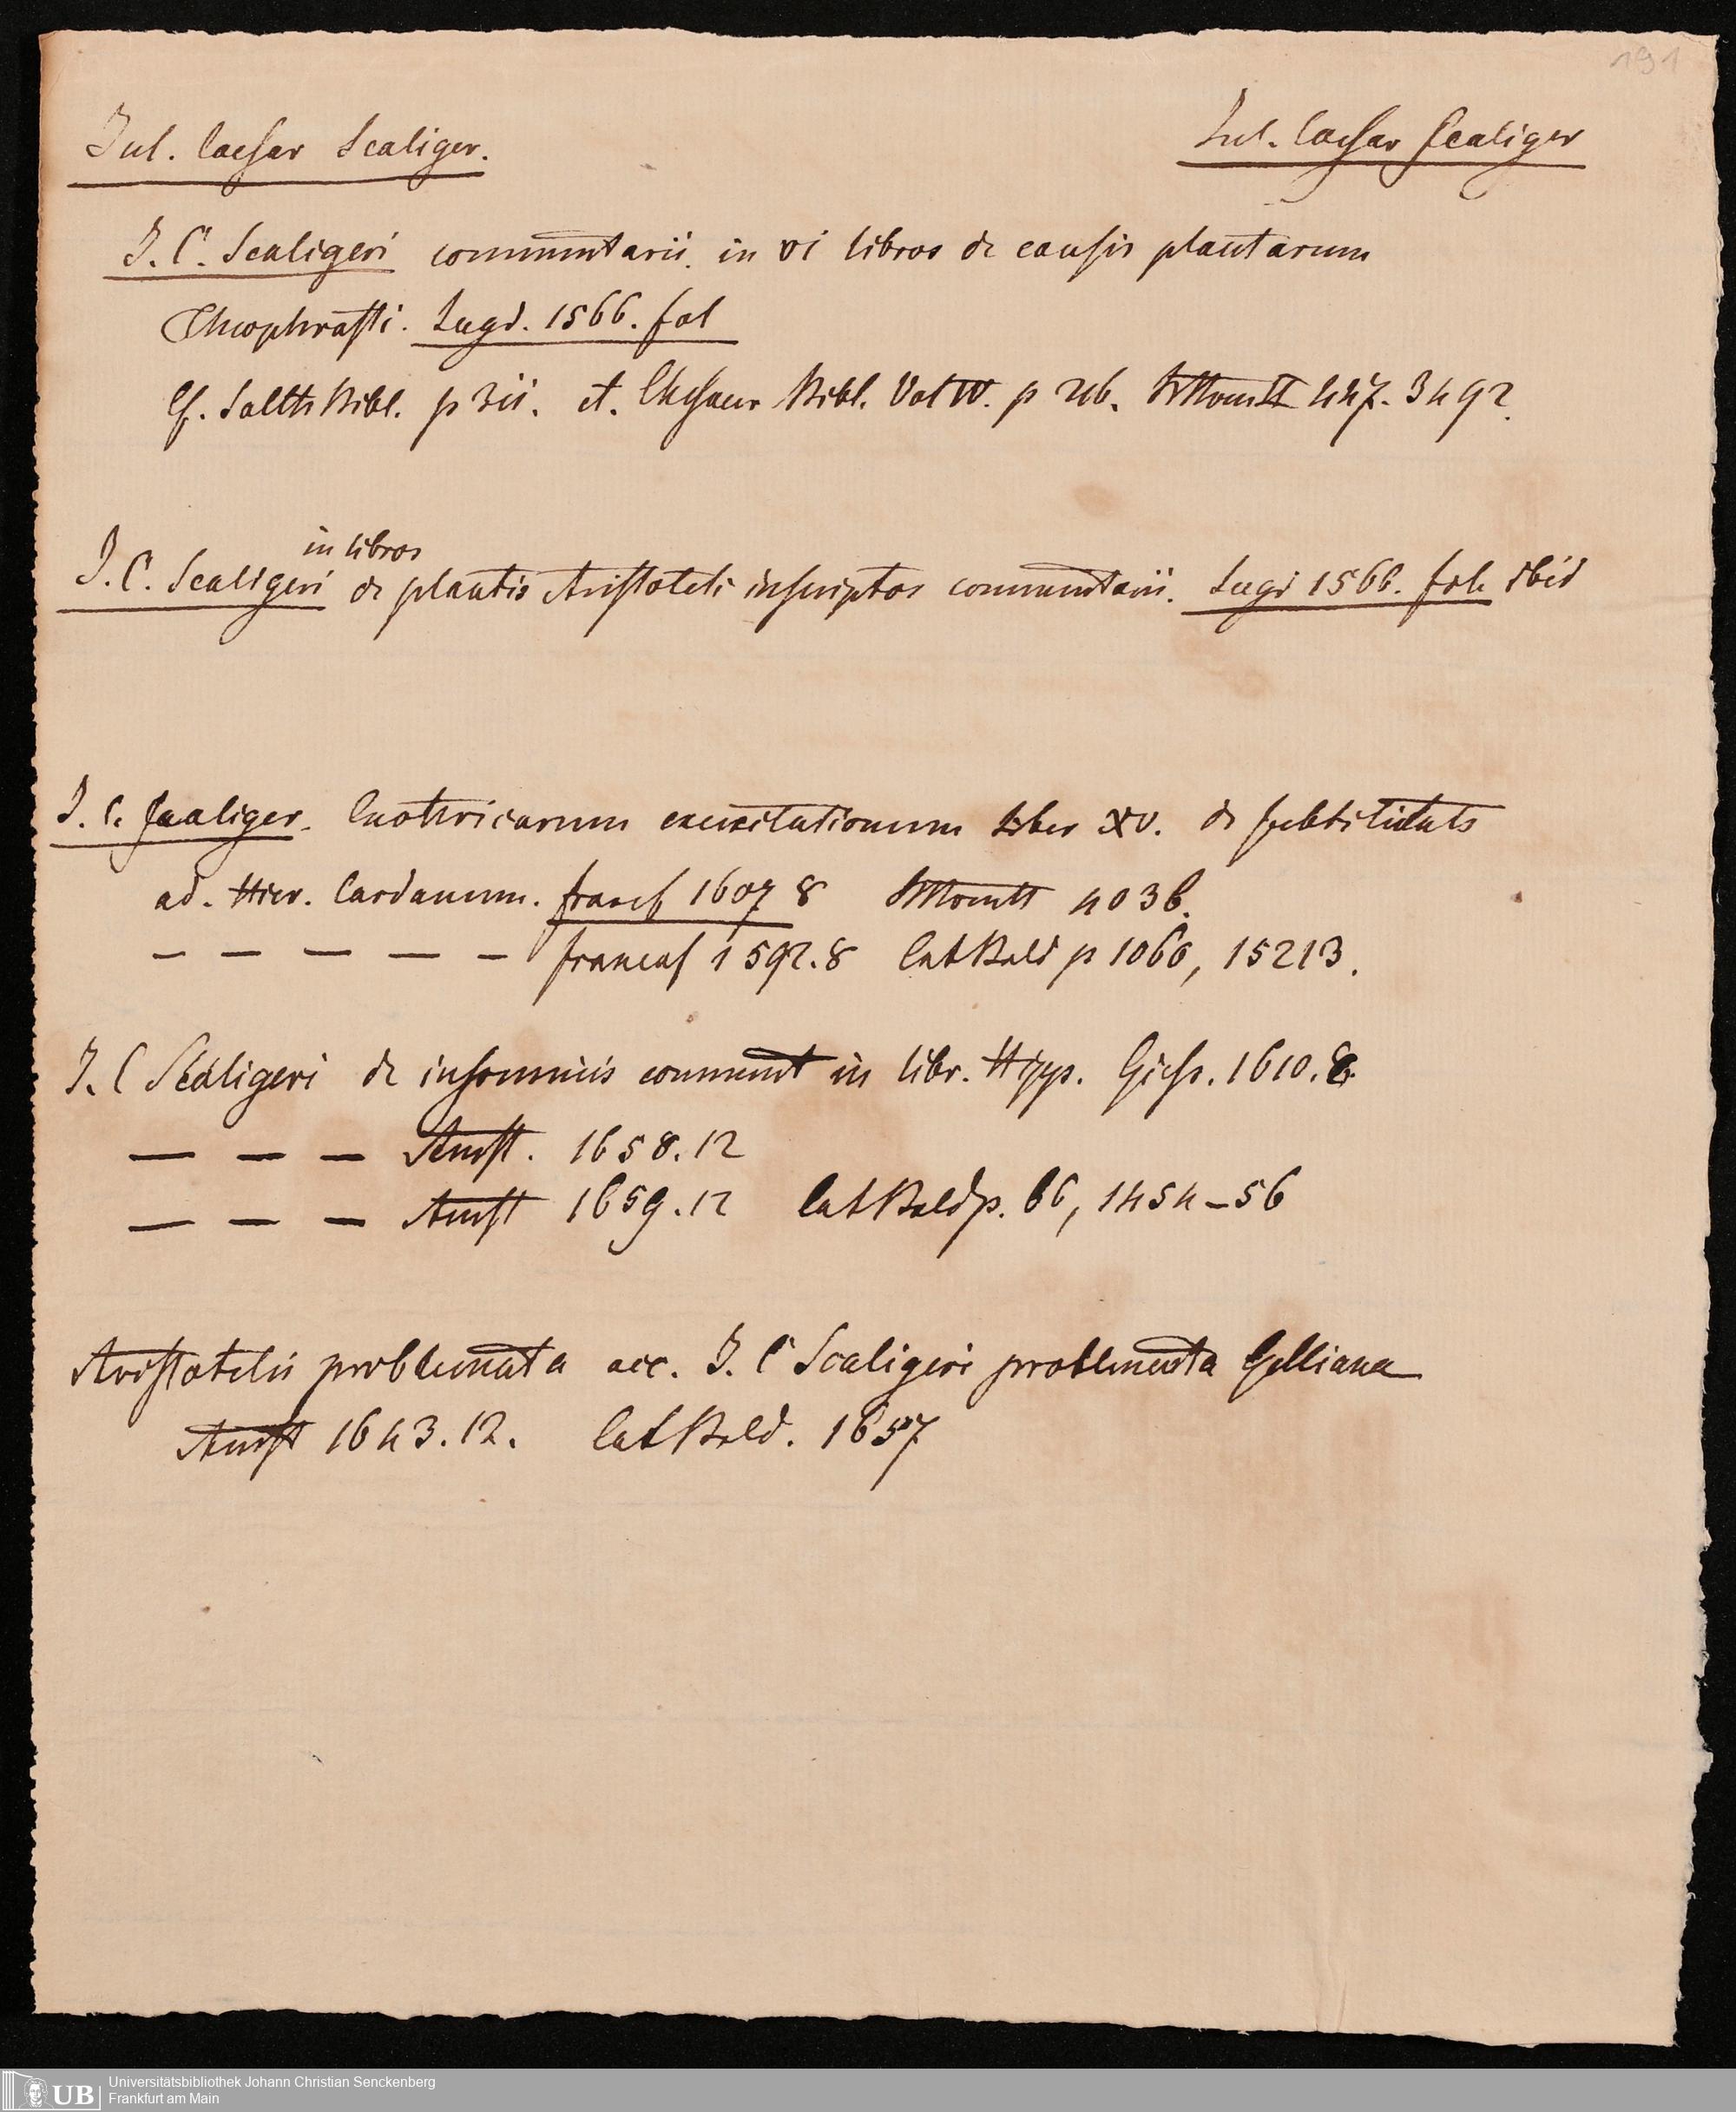 191
Jul. Caesar Scaliger.
Jul. Caesar Scaliger
J. C. Scaligeri commentarii in VI libros de causis plantarum
Theophrasti. Lugd. 1566. fol
Cf. Bibl. p et. Bibl. Vol IV. p
in libros
J. C. Scaligeri de plantis Aristoteli inscriptos commentarii. Lugd 1566. fol. ibid
J. C. Scaliger. Exotericarum exercitationum liber XV. de subtilitate
ad. Hier. Cardanum. francf 1607 8 4036.
— — — — — francof 1592.8 Cat Bald p 1060, 15213.
J. C Scaligeri de insomniis comment in libr. Hipp. Giess. 1610. 8.
— — — Amst. 1658. 12
— — — Amst 1659. 12 Cat Bald p. 66, 1454–56
Aristotelis problemata acc. J. C Scaligeri problemata Gelliana
Amst 1643. 12. Cat Bald. 1657
UB
Universitätsbibliothek Johann Christian Senckenberg
Frankfurt am Main